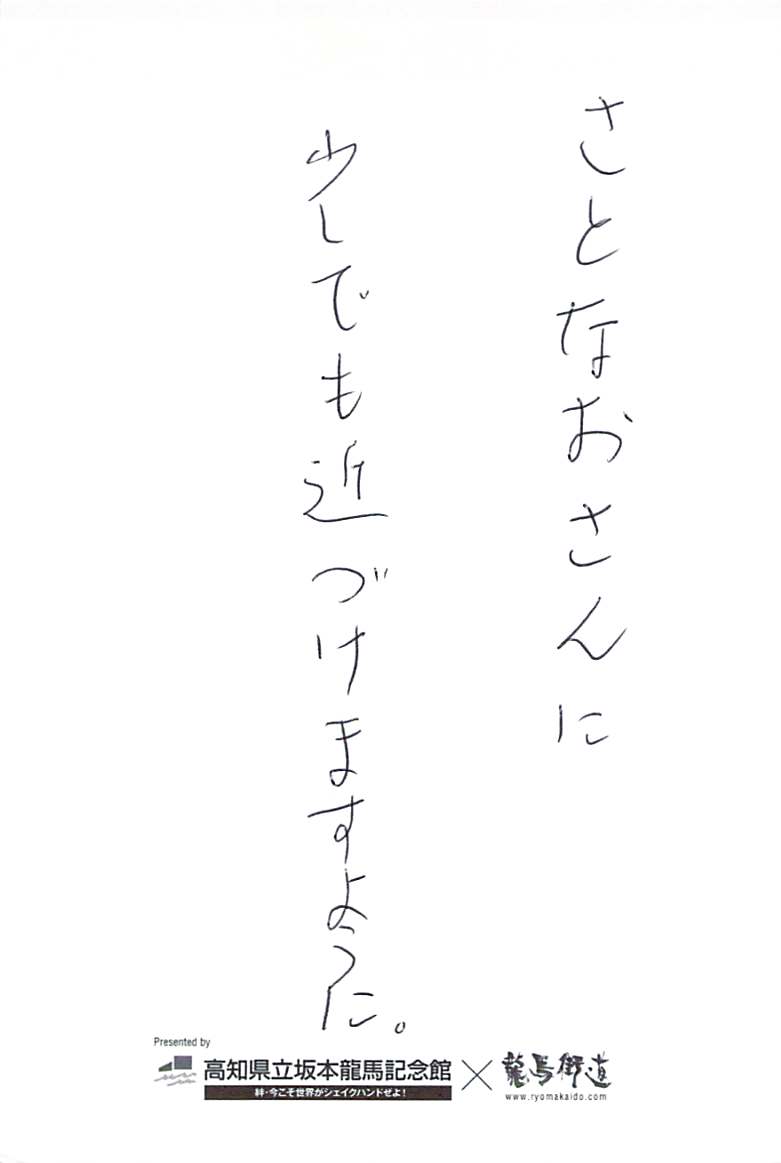 さとなおさんに
少しでも近づけますように。
Presented by
高知県立坂本龍馬記念館 × 龍馬街道
絆・今こそ世界がシェイクハンドぜよ！
www.ryomakaido.com